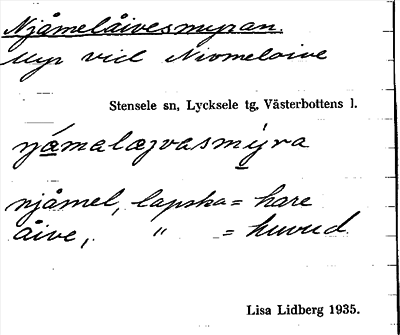 Njåmelåivesmyran.
Myr vid Njomeloive
Stensele sn, Lycksele tg, Västerbottens l.
njåmel, lapska = hare
åive, " = huvud
Lisa Lidberg 1935.